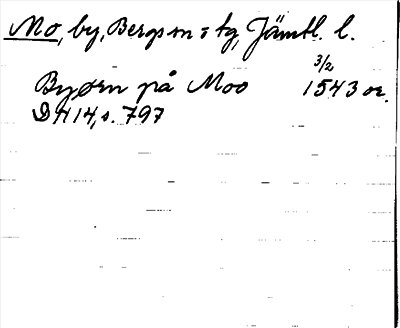 Mo, by, Bergs sn o tg, Jämtl. l.
Byørn på Moo 3/2 1543 or.
DN 14, s. 797